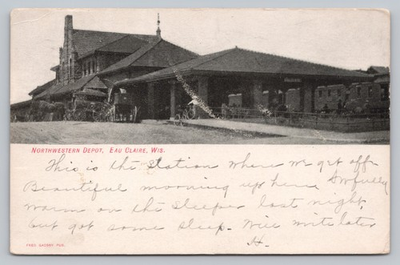 NORTHWESTERN DEPOT, EAU CLAIRE, WIS.
This is the station where we get off
Beautiful morning up here Awfully
warm on the sleeper last night,
but got some sleep. Will write later
H.
PUB.